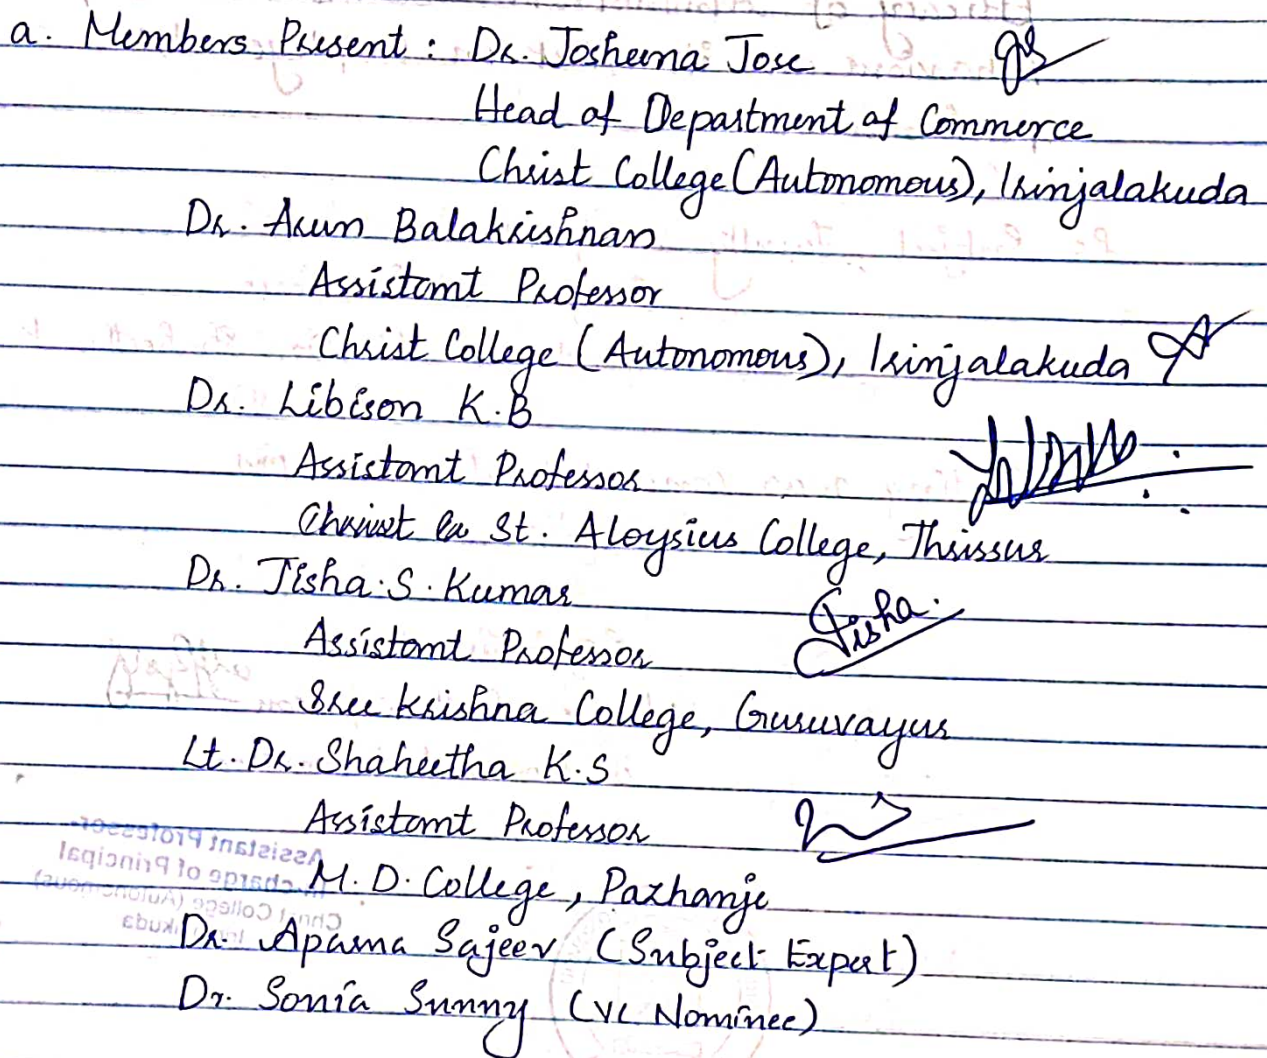 a. Members Present : Dr. Josheena Jose
Head of Department of Commerce
Christ College (Autonomous), Irinjalakuda
Dr. Arun Balakrishnan
Assistant Professor
Christ College (Autonomous), Irinjalakuda
Dr. Libison K.B
Assistant Professor
St. Aloysius College, Thrissur
Dr. Jisha.S.Kumar
Assistant Professor
Jisha.
Sree Krishna College, Guruvayur
Lt. Dr. Shaheetha K.S
Assistant Professor
M.D. College, Pazhanji
Dr. Aparna Sajeev (Subject Expert)
Dr. Sonia Sunny (VC Nominee)